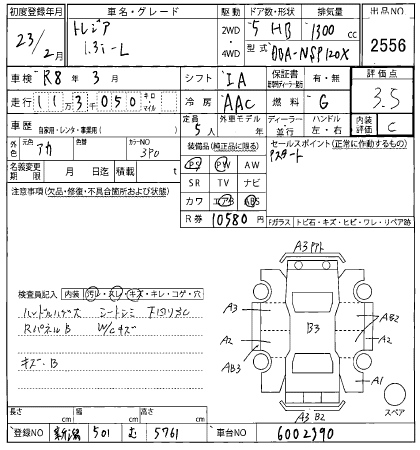 初度登録年月 車名・グレード 駆動 ドア数/形状 排気量 出品NO
23/2月 トレジア 1.3i-L 2WD・4WD 5 HB 1300cc 2556
型式 DBA-NSP120X
車検 R8年 3月 シフト IA 保証書 有・無 評価点
走行 11万3千050キロ・マイル 冷房 AAC 燃料 G 3.5
車歴 自家用・レンタ・事業用( ) 定員 5人 外車モデル 年 ディーラー・並行 ハンドル 左・右 内装評価 C
元色 アカ 色替 カラーNO 3P0 装備品(純正品に限る) セールスポイント(正常に作動するもの)
名義変更期限 月 日迄 積載量 t PS PW AW Pスタート
注意事項(欠品・修復・不具合箇所および状態) SR TV ナビ
カワ エアB ABS
R券 10580円 Fガラス トビ石・キズ・ヒビ・ワレ・リペア跡
A3
検査員記入 内装 汚レ・スレ・キズ・キレ・コゲ・穴
ハンドルハゲズ シートシミ 下回りSC
RパネルB W/Cキズ
キズ・B
A3 A2 AB3 B3 AB2 A2 A1
A3 B2 スペア
長さ cm 幅 cm 高さ cm
登録NO 新潟 501 む 5761 車台NO 6002390